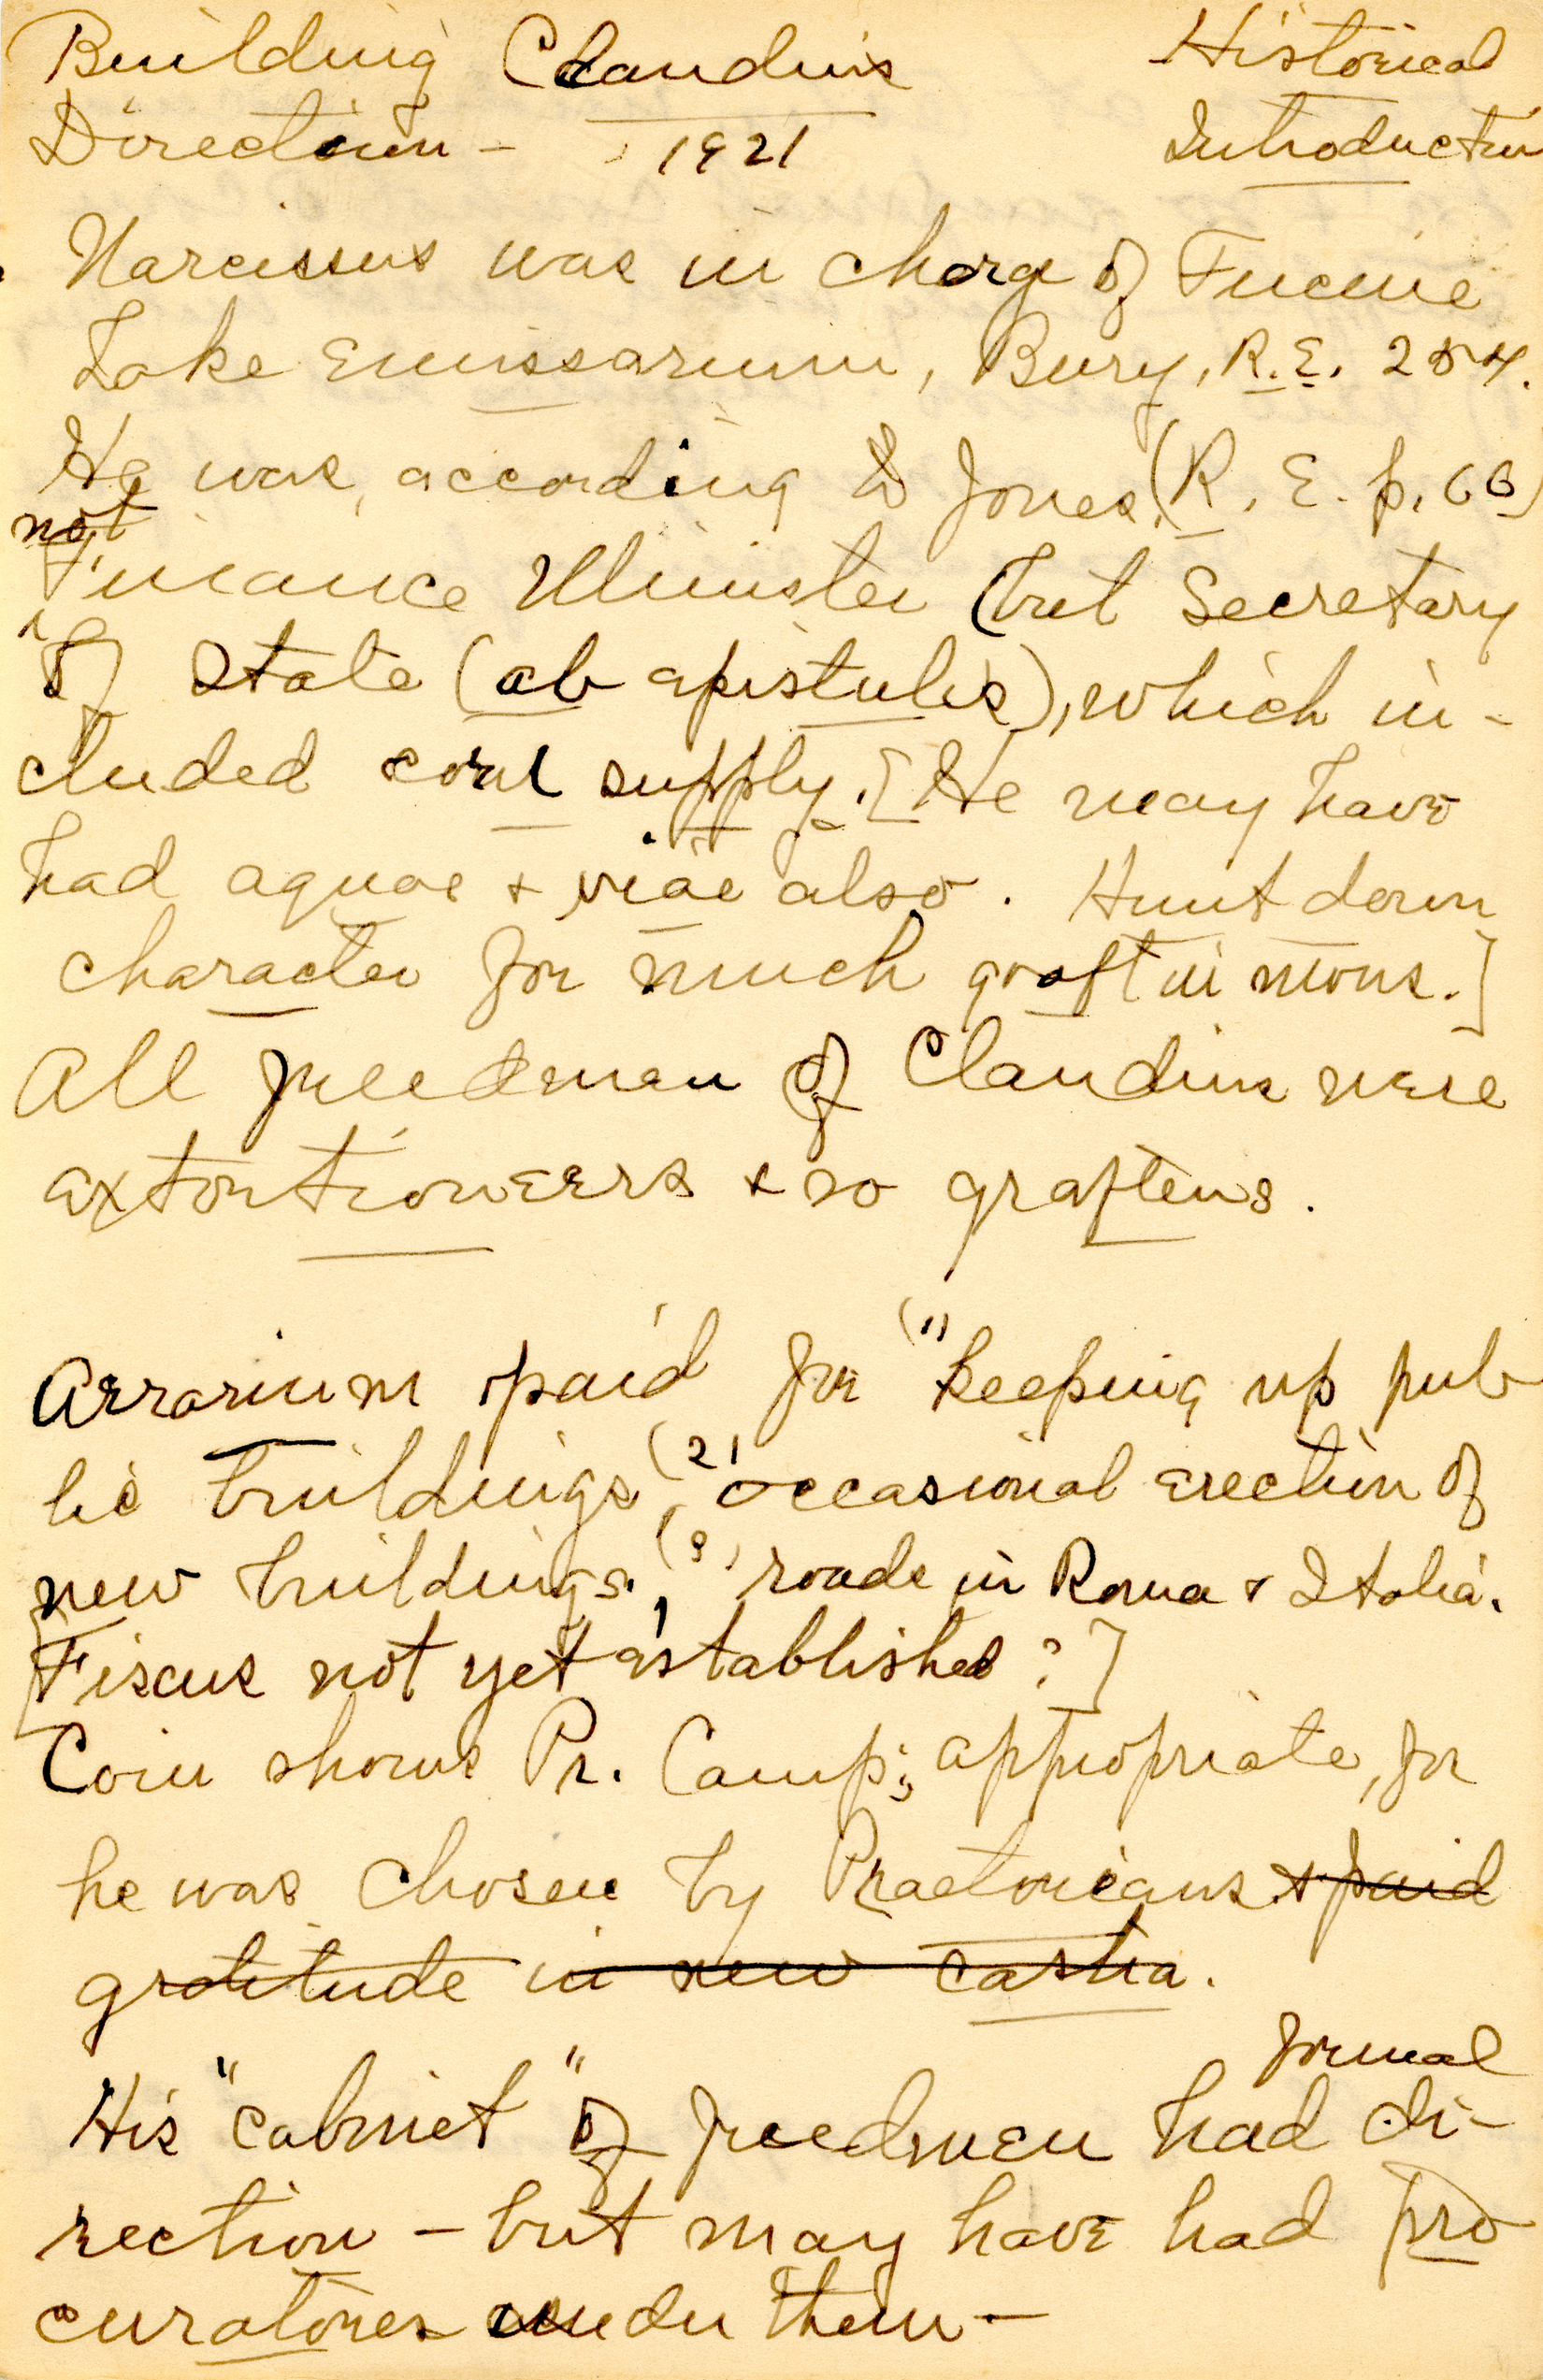 Building Claudius Historical
Direction - 1921 Introduction
Narcissus was in charge of Fucine
Lake Emissarium, Bury, R.E. 254.
He was, according to Jones (R. E. p. 66)
not
Finance Minister (but Secretary
of State (ab epistulis), which in-
cluded corn supply. [He may have
had aquae & viae also. Hunt down
character for much graft in mons.]
All freedmen of Claudius were
extortioneers & so grafters.
Aerarium paid for (1) keeping up pub
lic buildings, (2) occasional erection of
new buildings, (3) roads in Roma & Italia.
[Fiscus not yet established?]
Coin shows Pr. Camp; appropriate, for
he was chosen by Praetorians & paid
gratitude in new castra.
formal
His "cabinet" of freedmen had di-
rection - but may have had pro
curatores under them -